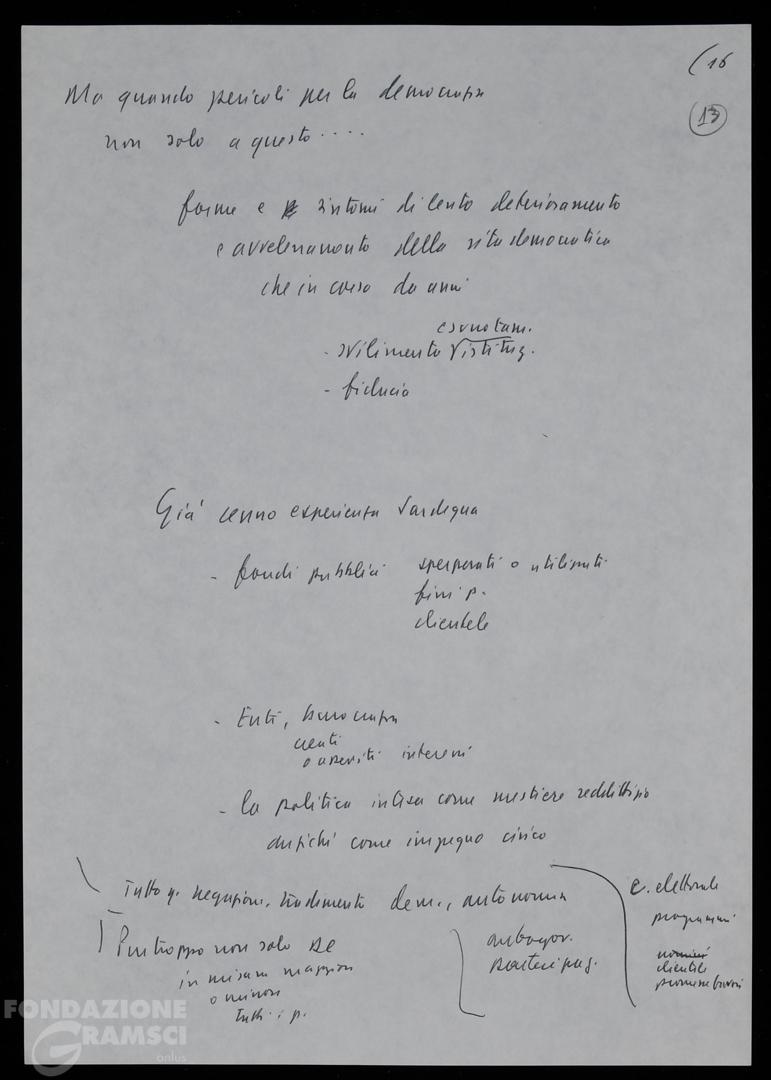 (16
13
Ma quando pericoli per la democrazia
non solo a questo ....
forme e sintomi di lento deterioramento
e avvelenamento della vita democratica
che in corso da anni
esautoram.
- svilimento istituz.
- fiducia
Già cenno esperienza Sardegna
- fondi pubblici sperperati o utilizzati
fini p.
clientele
- Enti, burocrazia
creati
o asserviti interessi
- la politica intesa come mestiere redditizio
anziché come impegno civico
Tutto q. negazione, tradimento dem., autonomia
Purtroppo non solo DC
in misura maggiore
o minore
tutti i p.
autogov.
partecipaz.
c. elettorale
programmi
nomine
clientele
promesse favori
FONDAZIONE
GRAMSCI
onlus